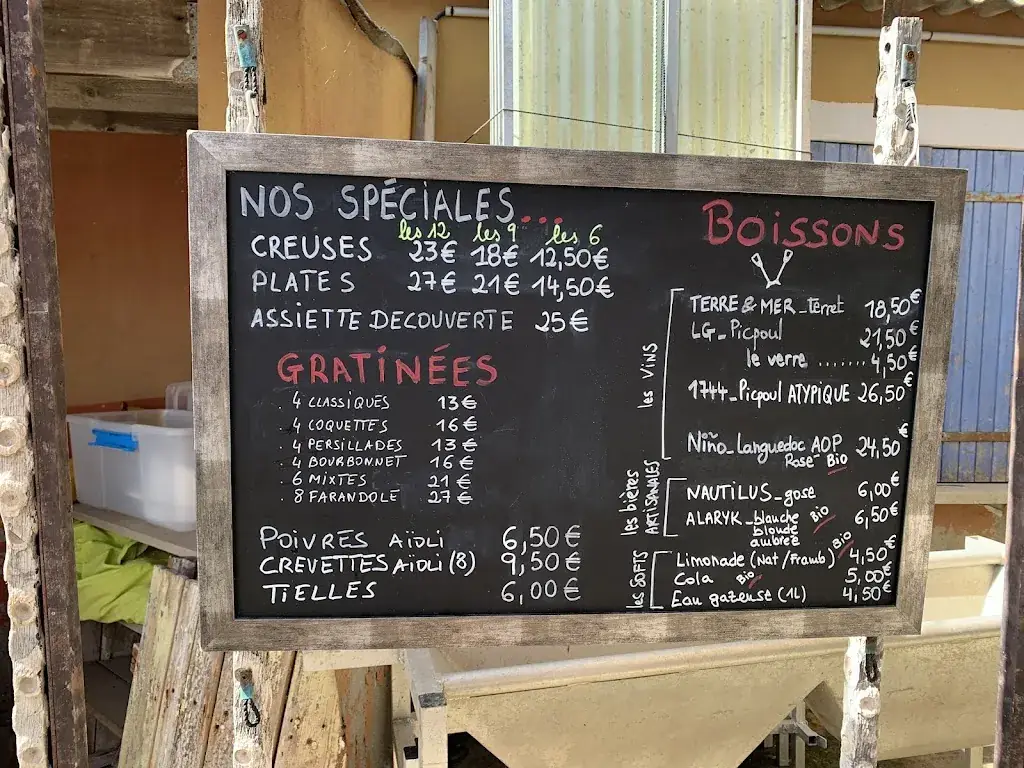 NOS SPÉCIALES...
les 12 les 9 les 6
CREUSES 23€ 18€ 12,50€
PLATES 27€ 21€ 14,50€
ASSIETTE DECOUVERTE 25€
GRATINÉES
. 4 CLASSIQUES 13€
. 4 COQUETTES 16€
. 4 PERSILLADES 13€
. 4 BOURBONNET 16€
. 6 MIXTES 21€
. 8 FARANDOLE 27€
POIVRES AïOLI 6,50€
CREVETTES AïOLI (8) 9,50€
TiELLES 6,00€
BOISSONS
les VINS
TERRE & MER_terret 18,50€
LG_Picpoul 21,50€
le verre ....... 4,50€
1744_Picpoul ATYPIQUE 26,50€
Niño_Languedoc AOP 24,50€
Rosé Bio
les bières ARTISANALES
NAUTILUS_gose 6,00€
ALARYK_blanche Bio 6,50€
blonde
ambrée
les SOFTS
Limonade (Nat/Framb) Bio 4,50€
Cola Bio 5,00€
Eau gazeuse (1L) 4,50€